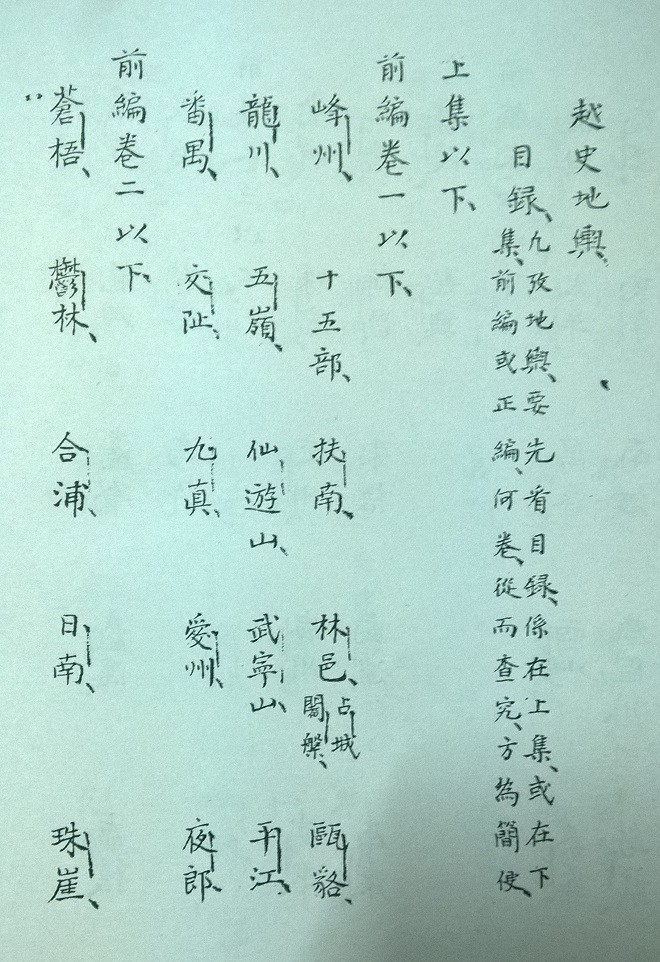 越史地輿
目録 九攷地輿要先看目録係在上集或在下
集前編或正編何卷從而查究方為簡便
上集以下
前編卷一以下
峰州 十五部 扶南 林邑 占城 闍槃 甌貉
龍川 五嶺 仙遊山 武寧山 平江
番禺 交阯 九真 愛州 夜郎
前編卷二以下
蒼梧 鬱林 合浦 日南 珠崖